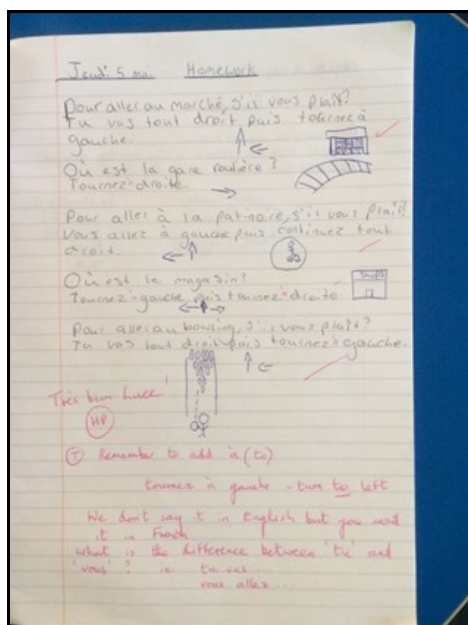 Jeudi 5 mai Homework
Pour aller au marché, s'il vous plaît?
Tu vas tout droit puis tournez à
gauche.
Où est la gare routière?
Tournez à droite.
Pour aller à la patinoire, s'il vous plaît?
Vous allez à gauche puis continuez tout
droit.
Où est le magasin?
Tournez à gauche puis tournez à droite.
Shops
Pour aller au bowling, s'il vous plaît?
Tu vas tout droit puis tournez à gauche.
Très bien
HP
T Remember to add à (to)
tournez à gauche - turn to left
We don't say it in English but you need
it in French
What is the difference between 'tu' and
'vous'? ie tu vas...
vous allez...